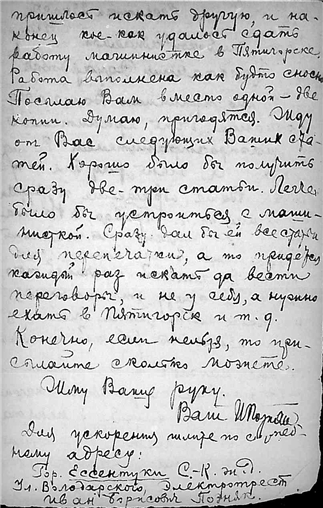 пришлось искать другую, и на-
конец кое-как удалось сдать
работу машинистке в Пятигорске.
Работа выполнена как будто сносно.
Посылаю Вам вместо одной - две
копии. Думаю, пригодятся. Жду
от Вас следующих Ваших ста-
тей. Хорошо было бы получить
сразу две-три статьи. Легче
было бы устроиться с маши-
нисткой. Сразу дал бы ей все статьи
для перепечатки, а то придется
каждый раз искать да вести
переговоры, и не у себя, а нужно
ехать в Пятигорск и т.д.
Конечно, если нельзя, то при-
сылайте сколько можете.
Жму Вашу руку.
Ваш
Для ускорения пишите по
адресу:
Гор. Ессентуки С.-К. ж.д.
Ул. Володарского, Электротрест
Иван Борисович